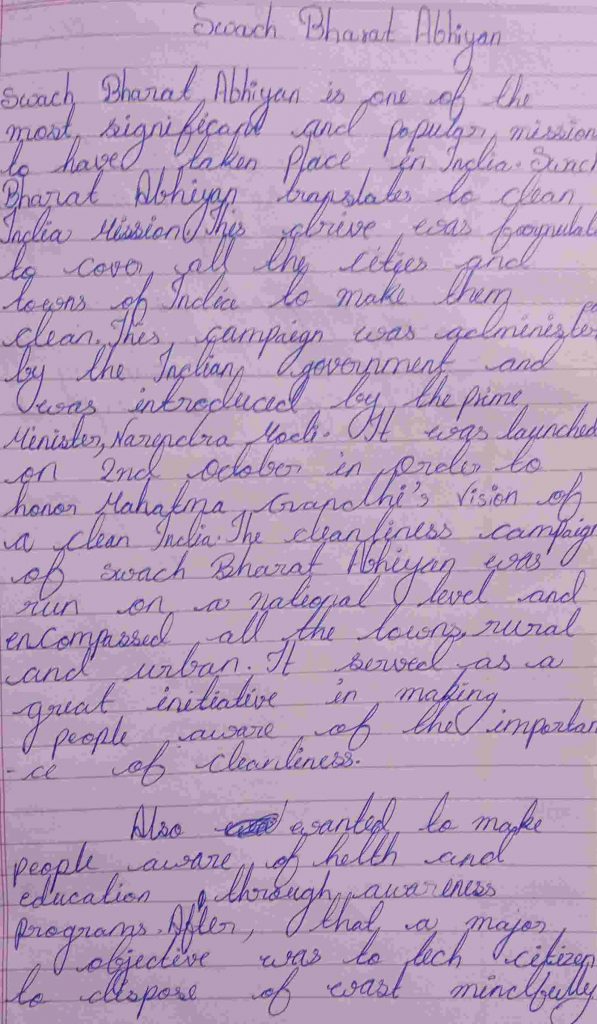 Swach Bharat Abhiyan
Swach Bharat Abhiyan is one of the
most significant and popular mission
to have taken place in India. Swach
Bharat Abhiyan translates to clean
India Mission. This drive was formulat
to cover all the cities and
towns of India to make them
clean. This campaign was administer
by the Indian government and
was introduced by the prime
Minister, Narendra Modi. It was launched
on 2nd october in order to
honor Mahatma Gandhi's vision of
a clean India. The cleanliness campaig
of swach Bharat Abhiyan was
run on a national level and
encompassed all the towns, rural
and urban. It served as a
great initiative in making
people aware of the importan
-ce of cleanliness.
Also wanted to make
people aware of helth and
education through awareness
programs. After, that a major
objective was to tech citizen
to dispose of wast mindfully